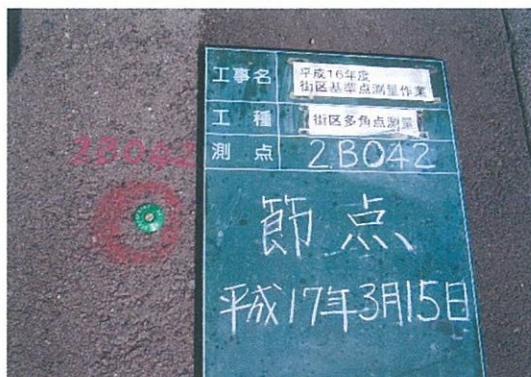 工事名 平成16年度
街区基準点測量作業
工種 街区多角点測量
測点 2B042
2B042
節点
平成17年3月15日